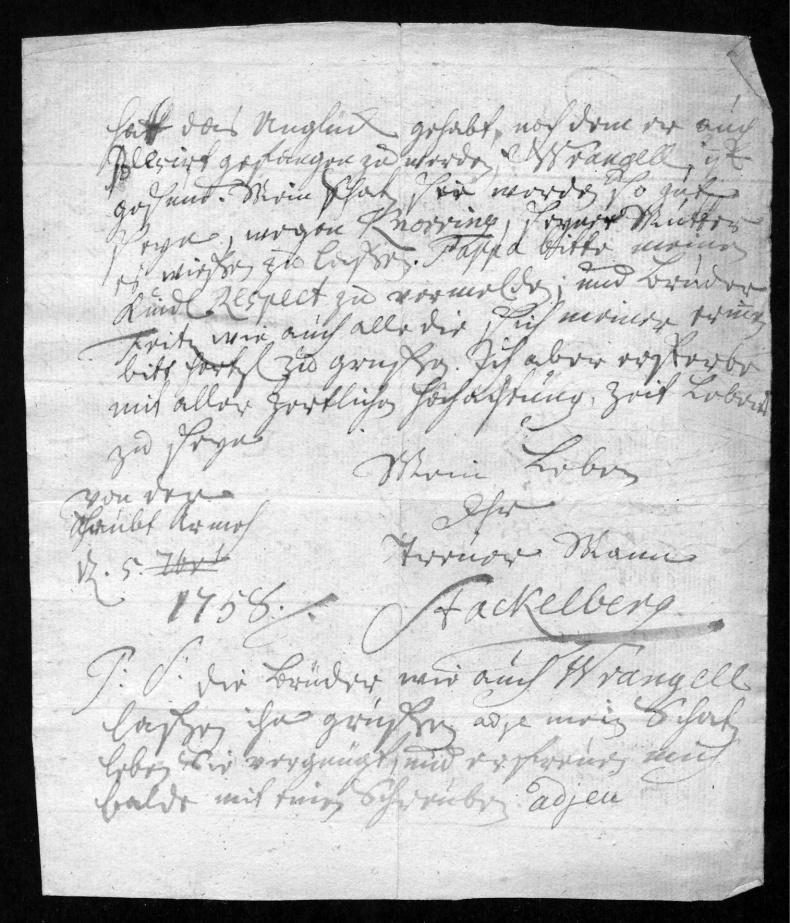 hatt das Unglück gehabt, nach dem er auch
plesirt gefangen zu werden, Wrangell ist
gesund. Mein Schatz Sie werden so gut
seyn, wegen Knorring, seyner Mutter
es wissen zu lassen. Pappa bitte meinen
Kindl Respect zu vermelden, und Brüder
Fritz wie auch alle die sich meiner erinnern
bitte hertzl zu grussen. Ich aber ersterbe
mit aller zertlichen Hochachtung, Zeit Lebens
zu seyn
Mein Leben
von der
Ihr
Haubt Armeh
Treuer Mann
d. 5. 7bri
1758.
Stackelberg
P. S. die Brüder wie auch Wrangell
lassen ihn grüssen adje mein Schatz
leben Sie vergnügt, und erfreuen mich
balde mit einen Schreuben adjeu